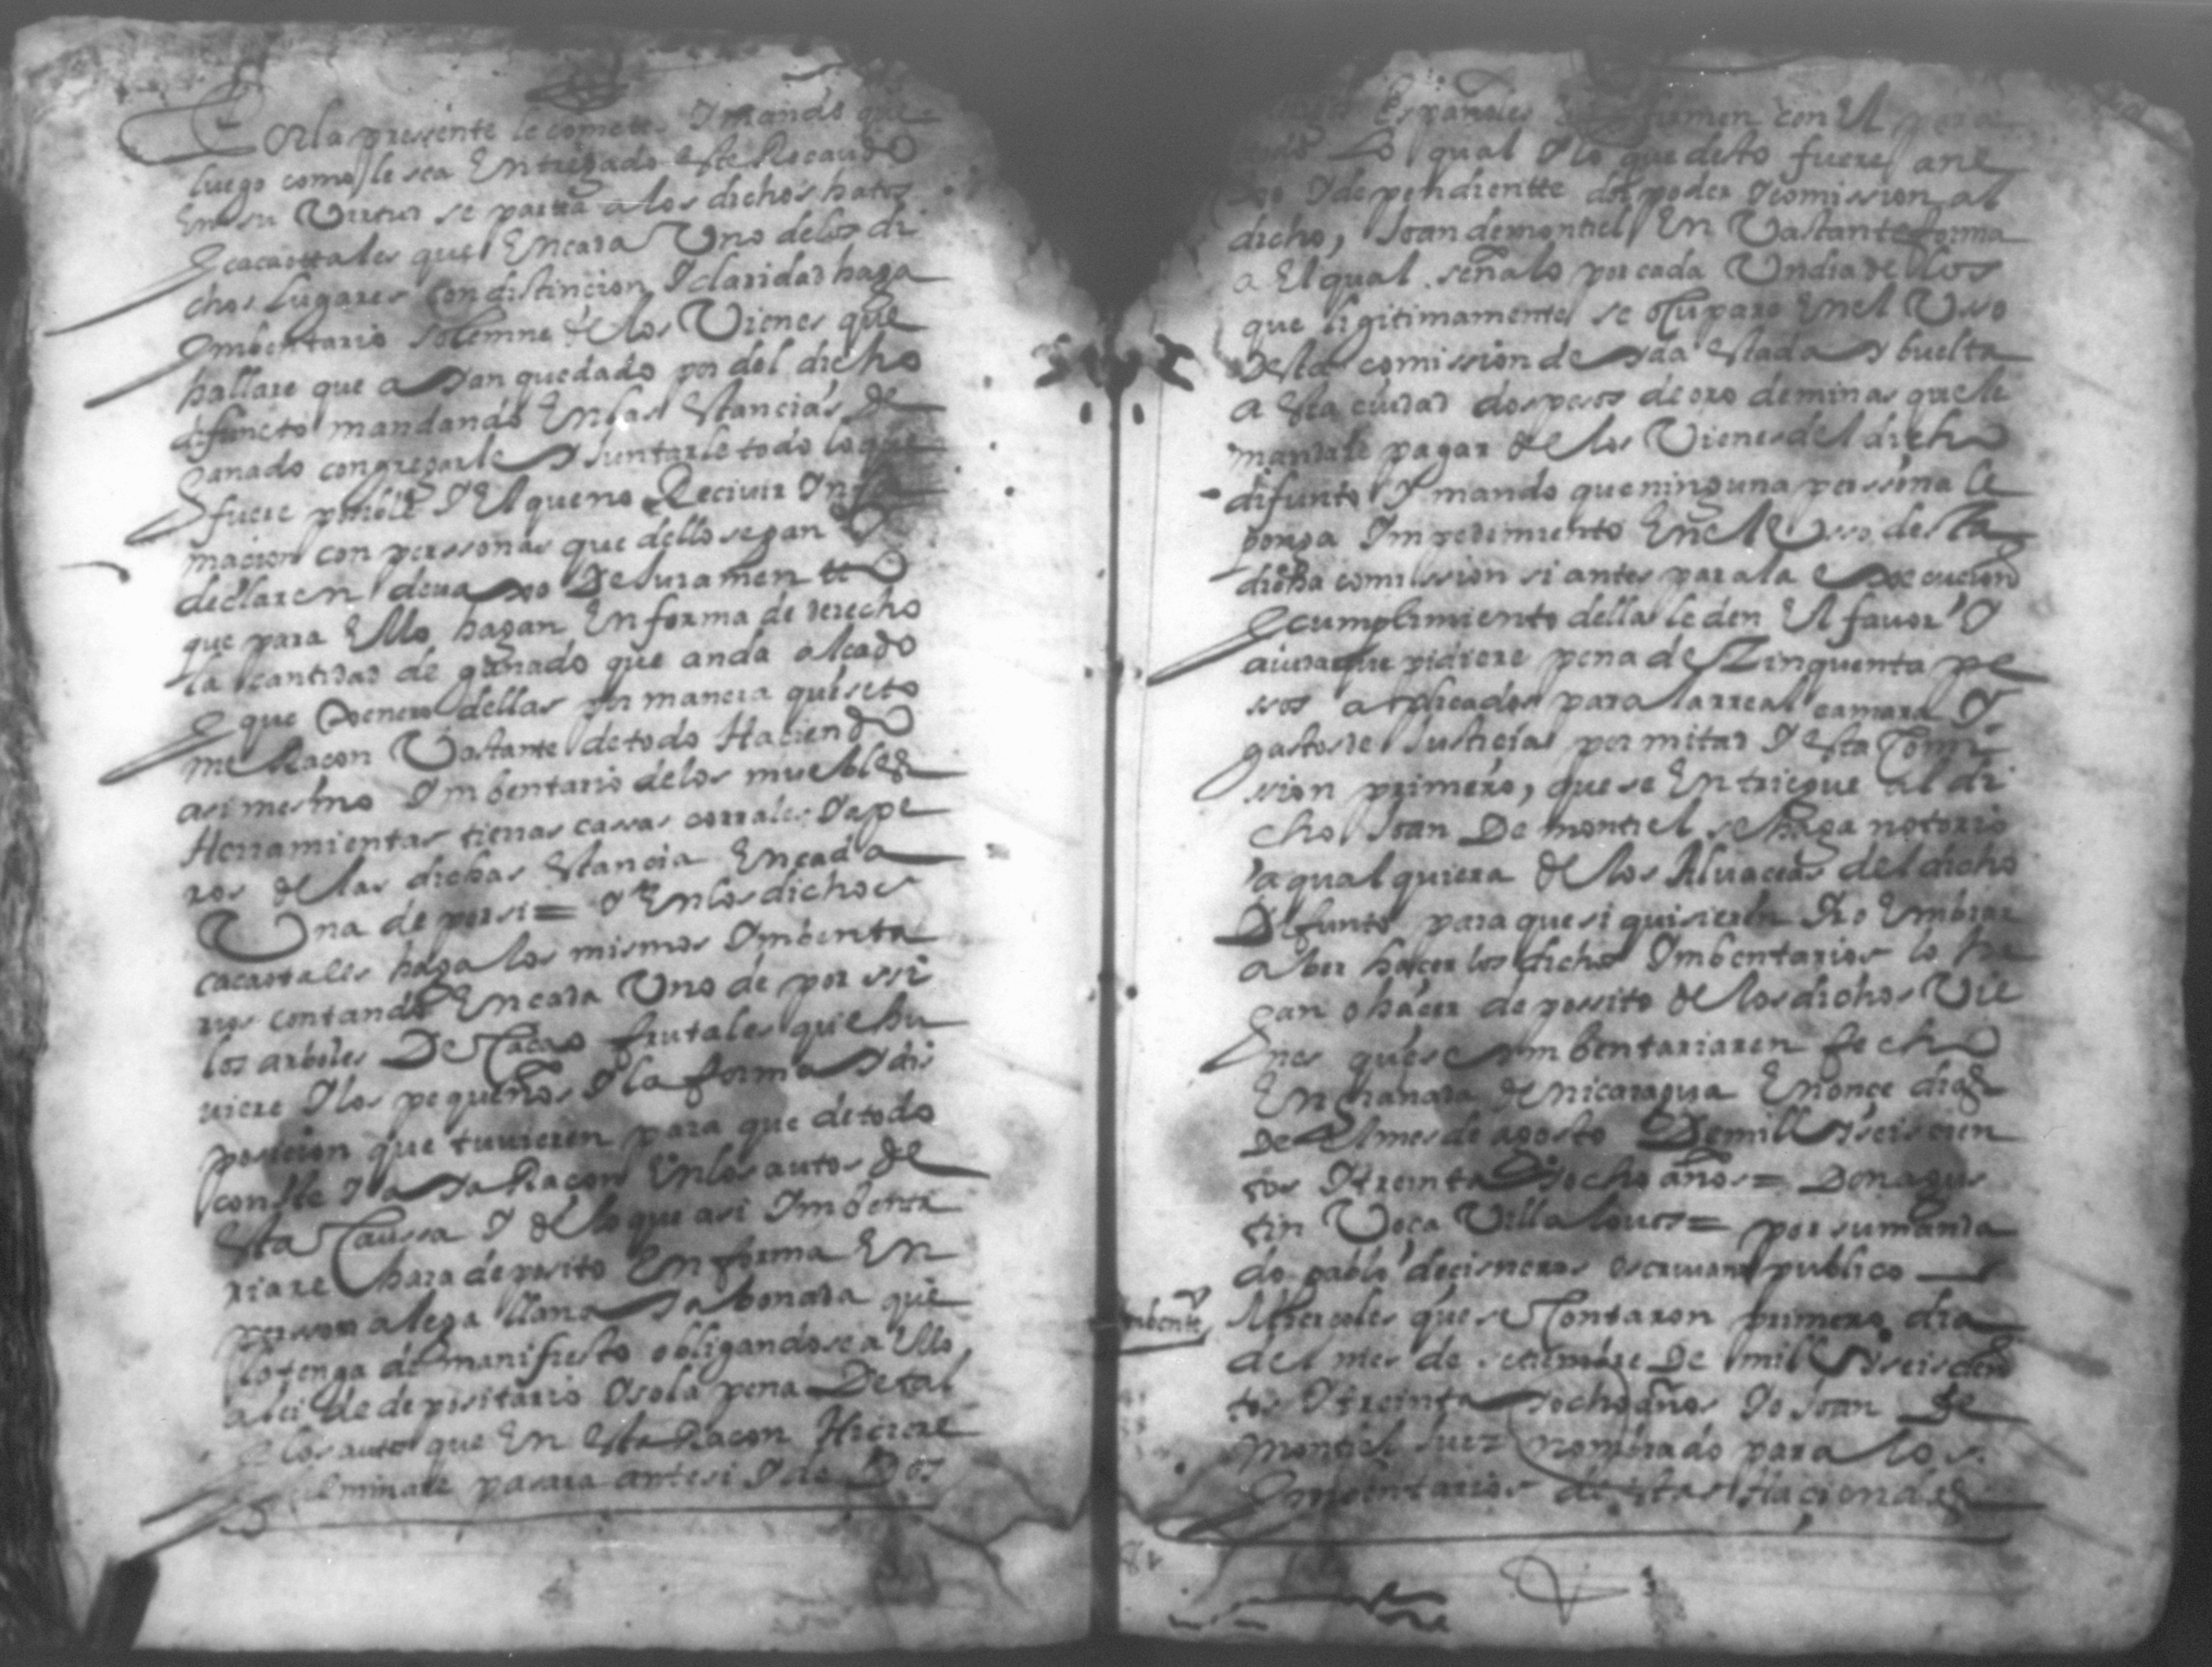 Por la presente le cometo Y mando que
luego como le sea Entregado este Recaudo
En su Virtud se parta a los dichos hatos
E cacaotales quel En cada Uno de los di
chos lugares Con distincion Y claridad haga
Ymbentario solemne de los Vienes que
hallare que ayan quedado por del dicho
difuncto mandando En las estancias de
ganado congregarle y Juntarle todo lo que
fuere posible Y El que no Recivir Ynfor
macion con perssonas que dello sepan Y
declaren devaxo de Juramento
que para Ello hagan En forma de derecho
la cantidad de ganado que anda alcado
E que Genero dellas por manera questo
me Racon Vastante de todo Haciendo
asi mesmo Ymbentario de los muebles
Herramientas tierras casas corrales Y ape
ros de las dichas estancia En cada
Una de por si = Y En los dichos
cacaotales haga los mismos Ymbenta
rios contando En cada Uno de por ssi
los arboles De Cacao frutales que hu
viere Y los pequeños Y la forma y dis
posicion que tuvieren para que de todo
conste Y aya Racon En los autos de
Esta Caussa Y de lo que asi Ymbenta
riare hara deposito En forma En
persson a lega llana y abonada que
lo tenga de manifiesto obligandose a Ello
a lei de depositario Y so la pena De tal
E los autos que En esta Racon Hiciere
E fulminare pasara ante si Y de Dos
Españoles que firmen con El para
todo Lo qual Y lo que desto fuere ane
xo Y dependientte doi poder Y comission al
dicho, Joan de montiel En Vastante forma
a El qual señalo por cada Un dia de los
que ligitimamente se ocupare En el Uso
Desta comission de yda estada y buelta
a esta ciudad dos pesos de oro de minas que le
mandare pagar de los Vienes del dicho
difunto Y mando que ninguna perssona le
ponga Ympedimiento En el Usso desta
dicha comission si antes para la Execucion
E cumplimiento della le den El favor Y
aiuda que pidiere pena de Cinquenta pe
ssos aplicados para la rreal camara Y
gastos de Justicia por mitad Y esta Comi
ssion primero, que se Entriegue al di
cho Joan De montiel se haga notorio
a qual quiera de los Alvaceas del dicho
Difunto para que si quisieren Yr o Embiar
a ber hacer los dichos Ymbentarios lo ha
gan o hacer de possito de los dichos Vie
nes que se ymbentariaren fecho
En granada de nicaragua En once dias
De El mes de agosto De mill Y seiscien
tos Y treinta Y ocho años = Don agus
tin Veça Villalovos = por su manda
do pablo de cisneros escrivano publico
Ymbentº
Miercoles que se Contaron primero dia
del mes de setiembre De mill Y seiscien
tos Y treinta y ocho años Yo Joan de
Montiel Juez nombrado para los
Ymbentarios de estas Haciendas